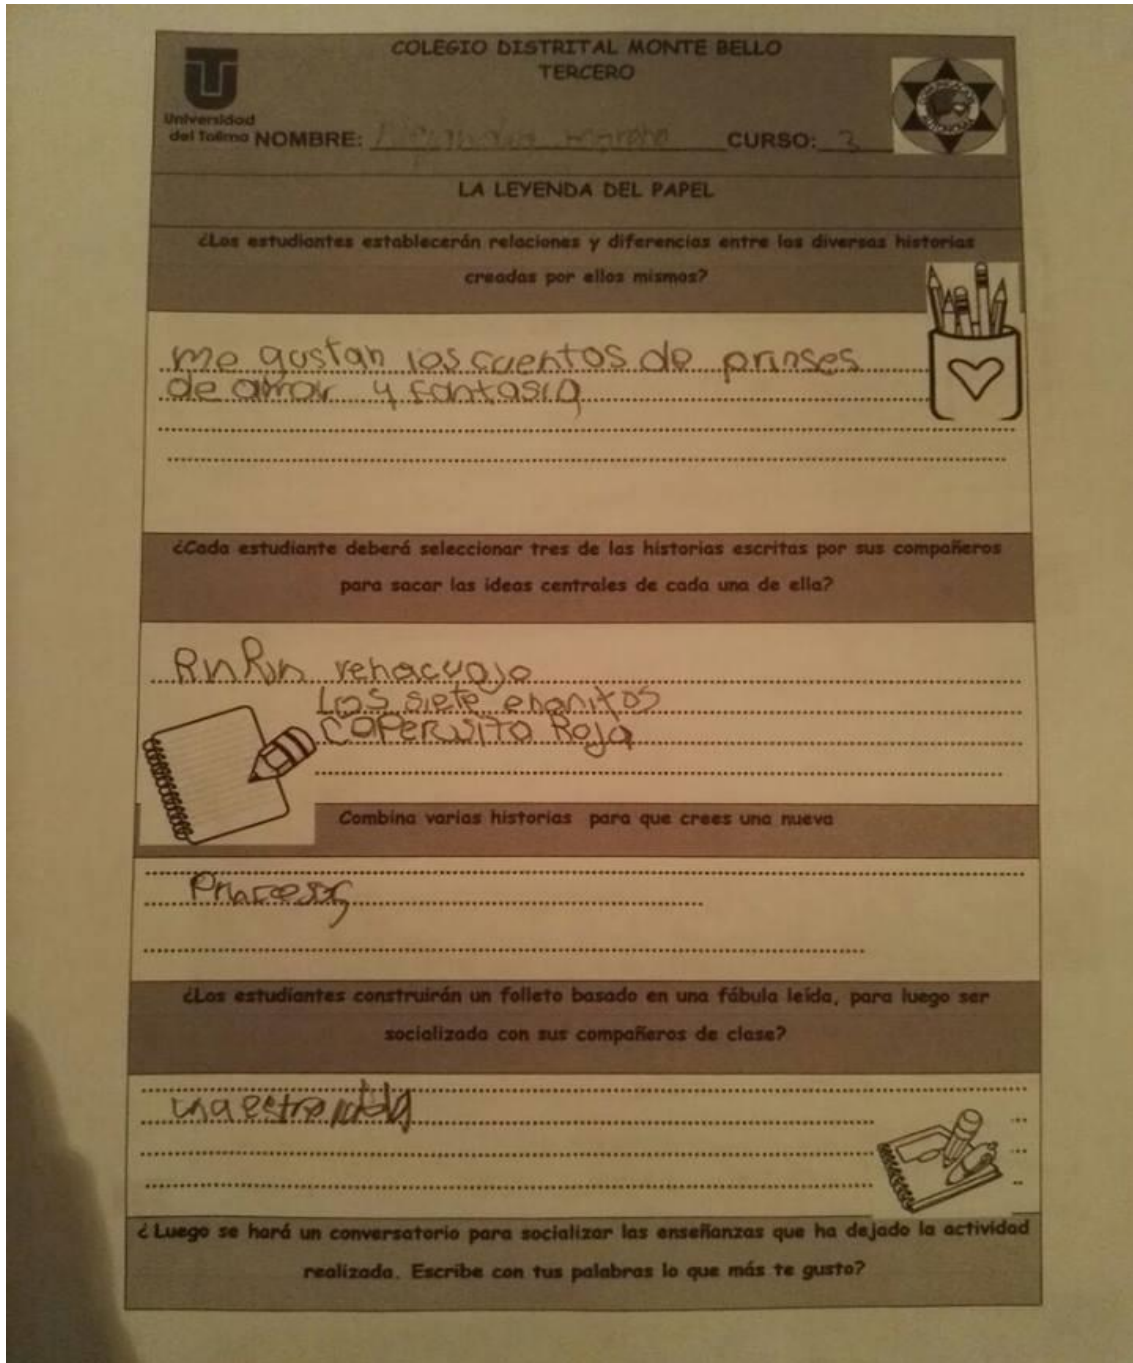 COLEGIO DISTRITAL MONTE BELLO
TERCERO
Universidad
del Tolima
NOMBRE: CURSO: 3
LA LEYENDA DEL PAPEL
¿Los estudiantes establecerán relaciones y diferencias entre las diversas historias
creadas por ellos mismos?
me gustan los cuentos de prinses
de amor y fantasia
¿Cada estudiante deberá seleccionar tres de las historias escritas por sus compañeros
para sacar las ideas centrales de cada una de ella?
RnRin renacuajo
Los siete enanitos
caperusita Roja
Combina varias historias para que crees una nueva
Princesas
¿Los estudiantes construirán un folleto basado en una fábula leída, para luego ser
socializada con sus compañeros de clase?
una estre
¿Luego se hará un conversatorio para socializar las enseñanzas que ha dejado la actividad
realizada. Escribe con tus palabras lo que más te gusto?